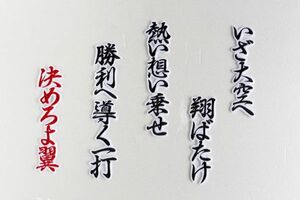 いざ大空へ
翔ばたけ
熱い想い乗せ
勝利へ導く一打
決めろよ翼